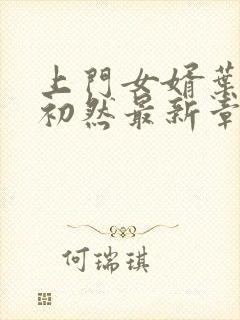 上門女婿葉
初然最新章
何瑞琪